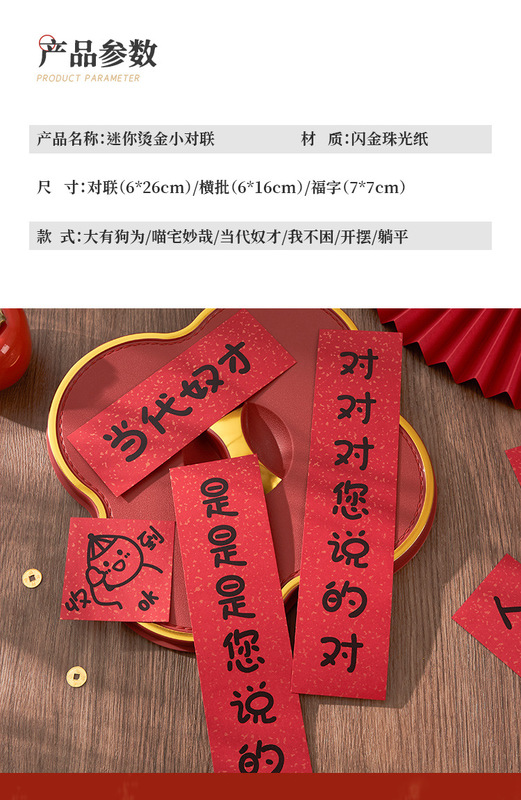 产品参数
PRODUCT PARAMETER
产品名称：迷你烫金小对联
材 质：闪金珠光纸
尺 寸：对联（6*26cm）/横批（6*16cm）/福字（7*7cm）
款 式：大有狗为/喵宅妙哉/当代奴才/我不困/开摆/躺平
当代奴才
对对对您说的对
是是是您说的
收到
OK